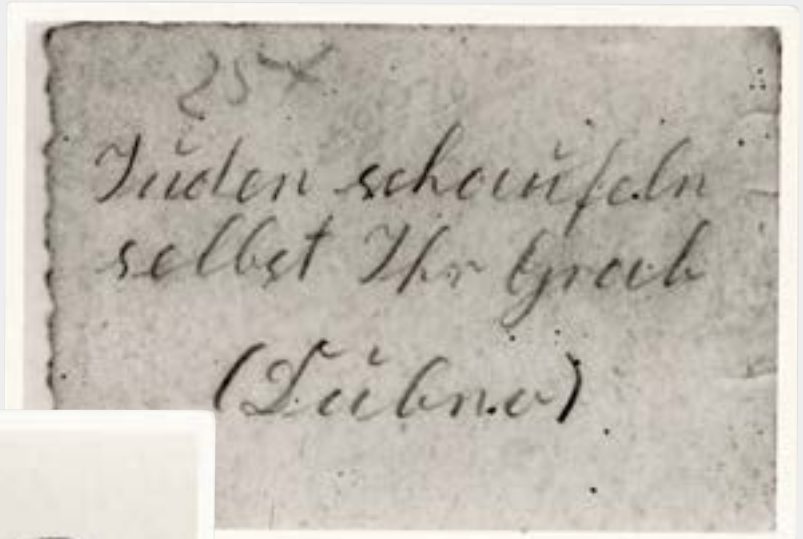 25 x
Juden schaufeln
selbst Ihr Grab
(Dubno)